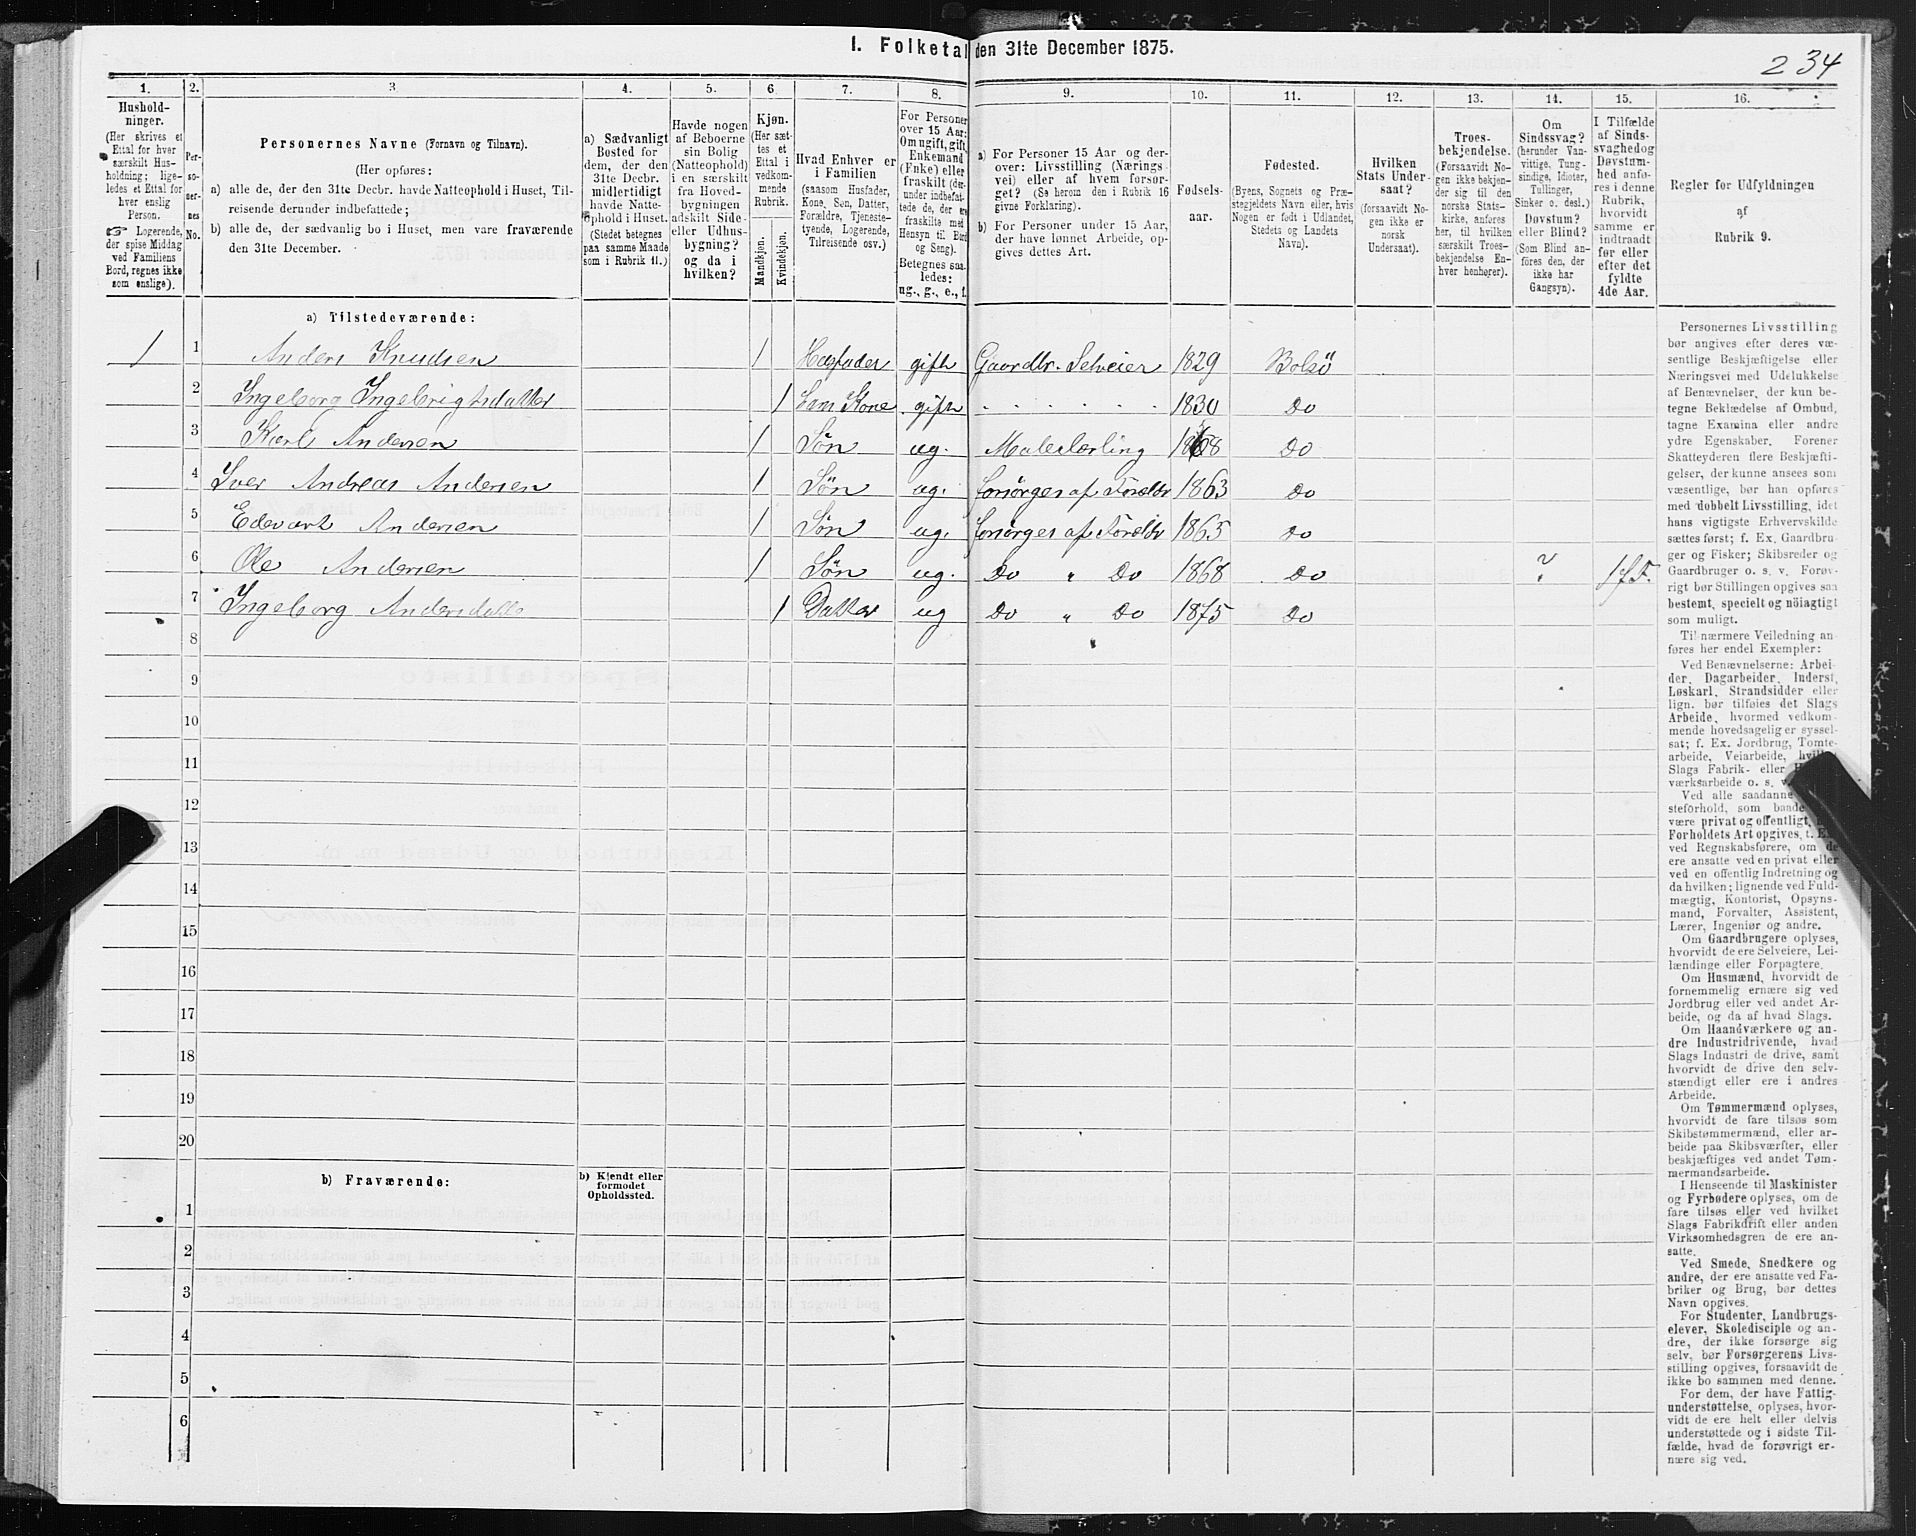 I. Folketal den 31te December 1875.
234
1. 2. 3. 4. 5. 6 7. 8. 9. 10. 11. 12. 13. 14. 15. 16.
Hushold-
ninger.
(Her skrives et
Ettal for hver
særskilt Hus-
holdning; lige-
ledes et Ettal for
hver enslig
Person.
☞ Logerende,
der spise Middag
ved Familiens
Bord, regnes ikke
som enslige).
Per-
so-
ner-
nes
No.
Personernes Navne (Fornavn og Tilnavn).
(Her opføres:
a) alle de, der den 31te Decbr. havde Natteophold i Huset, Til-
reisende derunder indbefattede;
b) alle de, der sædvanlig bo i Huset, men vare fraværende
den 31te December.
a) Sædvanligt
Bosted for
dem, der den
31te Decbr.
midlertidigt
havde Natte-
ophold i Huset.
(Stedet betegnes
paa samme Maade
som i Rubrik 11.)
Havde nogen
af Beboerne
sin Bolig
(Natteophold)
i en særskilt
fra Hoved-
bygningen
adskilt Side-
eller Udhus-
bygning?
og da i
hvilken?
Kjøn.
(Her sæt-
tes et
Ettal i
vedkom-
mende
Rubrik.
Mandkjøn.
Kvindekjøn.
Hvad Enhver er
i Familien
(saasom Husfader,
Kone, Søn, Datter,
Forældre, Tjeneste-
tyende, Logerende,
Tilreisende osv.)
For Personer
over 15 Aar:
Om ugift, gift,
Enkemand
(Enke) eller
fraskilt (der-
under indbefat-
tede de, der ere
fraskilte med
Hensyn til Bord
og Seng).
Betegnes saa-
ledes:
ug., g., e., f.
a) For Personer 15 Aar og der-
over: Livsstilling (Nærings-
vei) eller af hvem forsør-
get? (Se herom den i Rubrik 16
givne Forklaring).
b) For Personer under 15 Aar,
der have lønnet Arbeide, op-
gives dettes Art.
Fødsels-
aar.
Fødested.
(Byens, Sognets og Præ-
stegjeldets Navn eller, hvis
Nogen er født i Udlandet,
Stedets og Landets
Navn).
Hvilken
Stats Under-
saat?
(forsaavidt No-
gen ikke er
norsk
Undersaat).
Troes-
bekjendelse.
(Forsaavidt No-
gen ikke bekjen-
der sig til den
norske Stats-
kirke, anføres
her, til hvilken
særskilt Troes-
bekjendelse En-
hver henhører).
Om
Sindssvag?
(herunder Van-
vittige, Tung-
sindige, Idioter,
Tullinger,
Sinker o. desl.)
Døvstum?
eller Blind?
(Som Blind an-
føres den, der
ikke har
Gangsyn).
I Tilfælde
af Sinds-
svaghed og
Døvstum-
hed anfø-
res i denne
Rubrik,
hvorvidt
samme er
indtraadt
før eller
efter det
fyldte
4de Aar.
Regler for Udfyldningen
af
Rubrik 9.
a) Tilstedeværende:
1 1 Anders Knudsen 1 Husfader gift Gaardbr. Selveier 1829 Bolsö
2 Ingeborg Ingebrigtsdatter 1 gift 1830 Do
3 Karl Andersen 1 Søn ug. Malerlærling Do
4 Iver Andreas Andersen 1 Søn ug. forsørges af Foreldr 1863 Do
5 Edevart Andersen 1 Søn ug. forsørges af Foreldr 1865 Do
6 Ole Andersen 1 Søn ug. Do " Do 1868 Do ?
7 Ingeborg Andersdatte 1 Datter ug Do " Do 1875 Do
8
9
10
11
12
13
14
15
16
17
18
19
20
b) Fraværende:
b) Kjendt eller
formodet
Opholdssted.
1
2
3
4
5
6
Personernes Livsstilling
bør angives efter deres væ-
sentlige Beskjæftigelse eller
Næringsvei med Udelukkelse
af Benævnelser, der kun be-
tegne Beklædelse af Ombud,
tagne Examina eller andre
ydre Egenskaber. Forener
Skatteyderen flere Beskjæfti-
gelser, der kunne ansees som
væsentlige, bør han opføres
med dobbelt Livsstilling, idet
hans vigtigste Erhvervskilde
sættes først; f. Ex. Gaardbru-
ger og Fisker; Skibsreder og
Gaardbruger o. s. v. Forøv-
rigt bør Stillingen opgives saa
bestemt, specielt og nöiagtigt
som muligt.
Til nærmere Veiledning an-
føres her endel Exempler:
Ved Benævnelserne: Arbei-
der, Dagarbeider, Inderst,
Løskarl, Strandsidder eller
lign. bør tilføies det Slags
Arbeide, hvormed vedkom-
mende hovedsagelig er syssel-
sat; f. Ex. Jordbrug, Tomte-
arbeide, Veiarbeide,
Slags Fabrik- eller
værksarbeide o. s.
Ved alle saadanne
steforhold, som baade
være privat og offentligt,
Forholdets Art opgives,
ved Regnskabsførere, om de
ere ansatte ved en privat eller
ved en offentlig Indretning og
da hvilken; lignende ved Fuld-
mægtig, Kontorist, Opsyns-
mand, Forvalter, Assistent,
Lærer, Ingeniør og andre.
Om Gaardbrugere oplyses,
hvorvidt de ere Selveiere, Lei-
lændinge eller Forpagtere.
Om Husmænd, hvorvidt de
fornemmelig ernære sig ved
Jordbrug eller ved andet Ar-
beide, og da af hvad Slags.
Om Haandværkere og an-
dre Industridrivende, hvad
Slags Industri de drive, samt
hvorvidt de drive den selv-
stændigt eller ere i andres
Arbeide.
Om Tømmermænd oplyses,
hvorvidt de fare tilsøs som
Skibstømmermænd, eller ar-
beide paa Skibsværfter, eller
beskjæftiges ved andet Tøm-
mermandsarbeide.
I Henseende til Maskinister
og Fyrbødere oplyses, om de
fare tilsøs eller ved hvilket
Slags Fabrikdrift eller anden
Virksomhedsgren de ere an-
satte.
Ved Smede, Snedkere og
andre, der ere ansatte ved Fa-
briker og Brug, bør dettes
Navn opgives.
For Studenter, Landbrugs-
elever, Skoledisciple og an-
dre, der ikke forsørge sig
selv, bør Forsørgerens Livs-
stilling opgives, forsaavidt de
ikke bo sammen med denne.
For dem, der have Fattig-
understøttelse, oplyses, hvor-
vidt de ere helt eller delvis
understøttede og i sidste Til-
fælde, hvad de forøvrigt er-
nære sig ved.